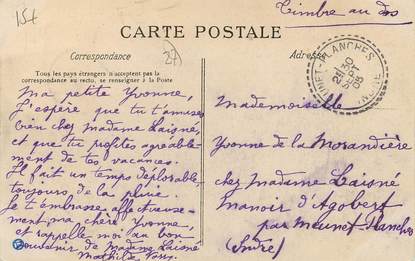 15f
Timbre au dos
CARTE POSTALE
Correspondance
27
Adresse
Tous les pays étrangers n'acceptent pas la
correspondance au recto, se renseigner à la Poste
MEUNET PLANCHES
30
SEPT
05
INDRE
Ma petite Yvonne,
J'espère que tu t'amuses
bien chez Madame Laisné,
et que tu profites agréable-
ment de tes vacances.
Il fait un temps déplorable,
toujours de la pluie.
Je t'embrasse affectueuse-
ment ma chère Yvonne,
et rappelle moi au bon
souvenir de Madame Laisné
Mathilde
Mademoiselle
Yvonne de la Morandière
chez Madame Laisné
Manoir d'Agobert
par Meunet-Planches
(Indre)